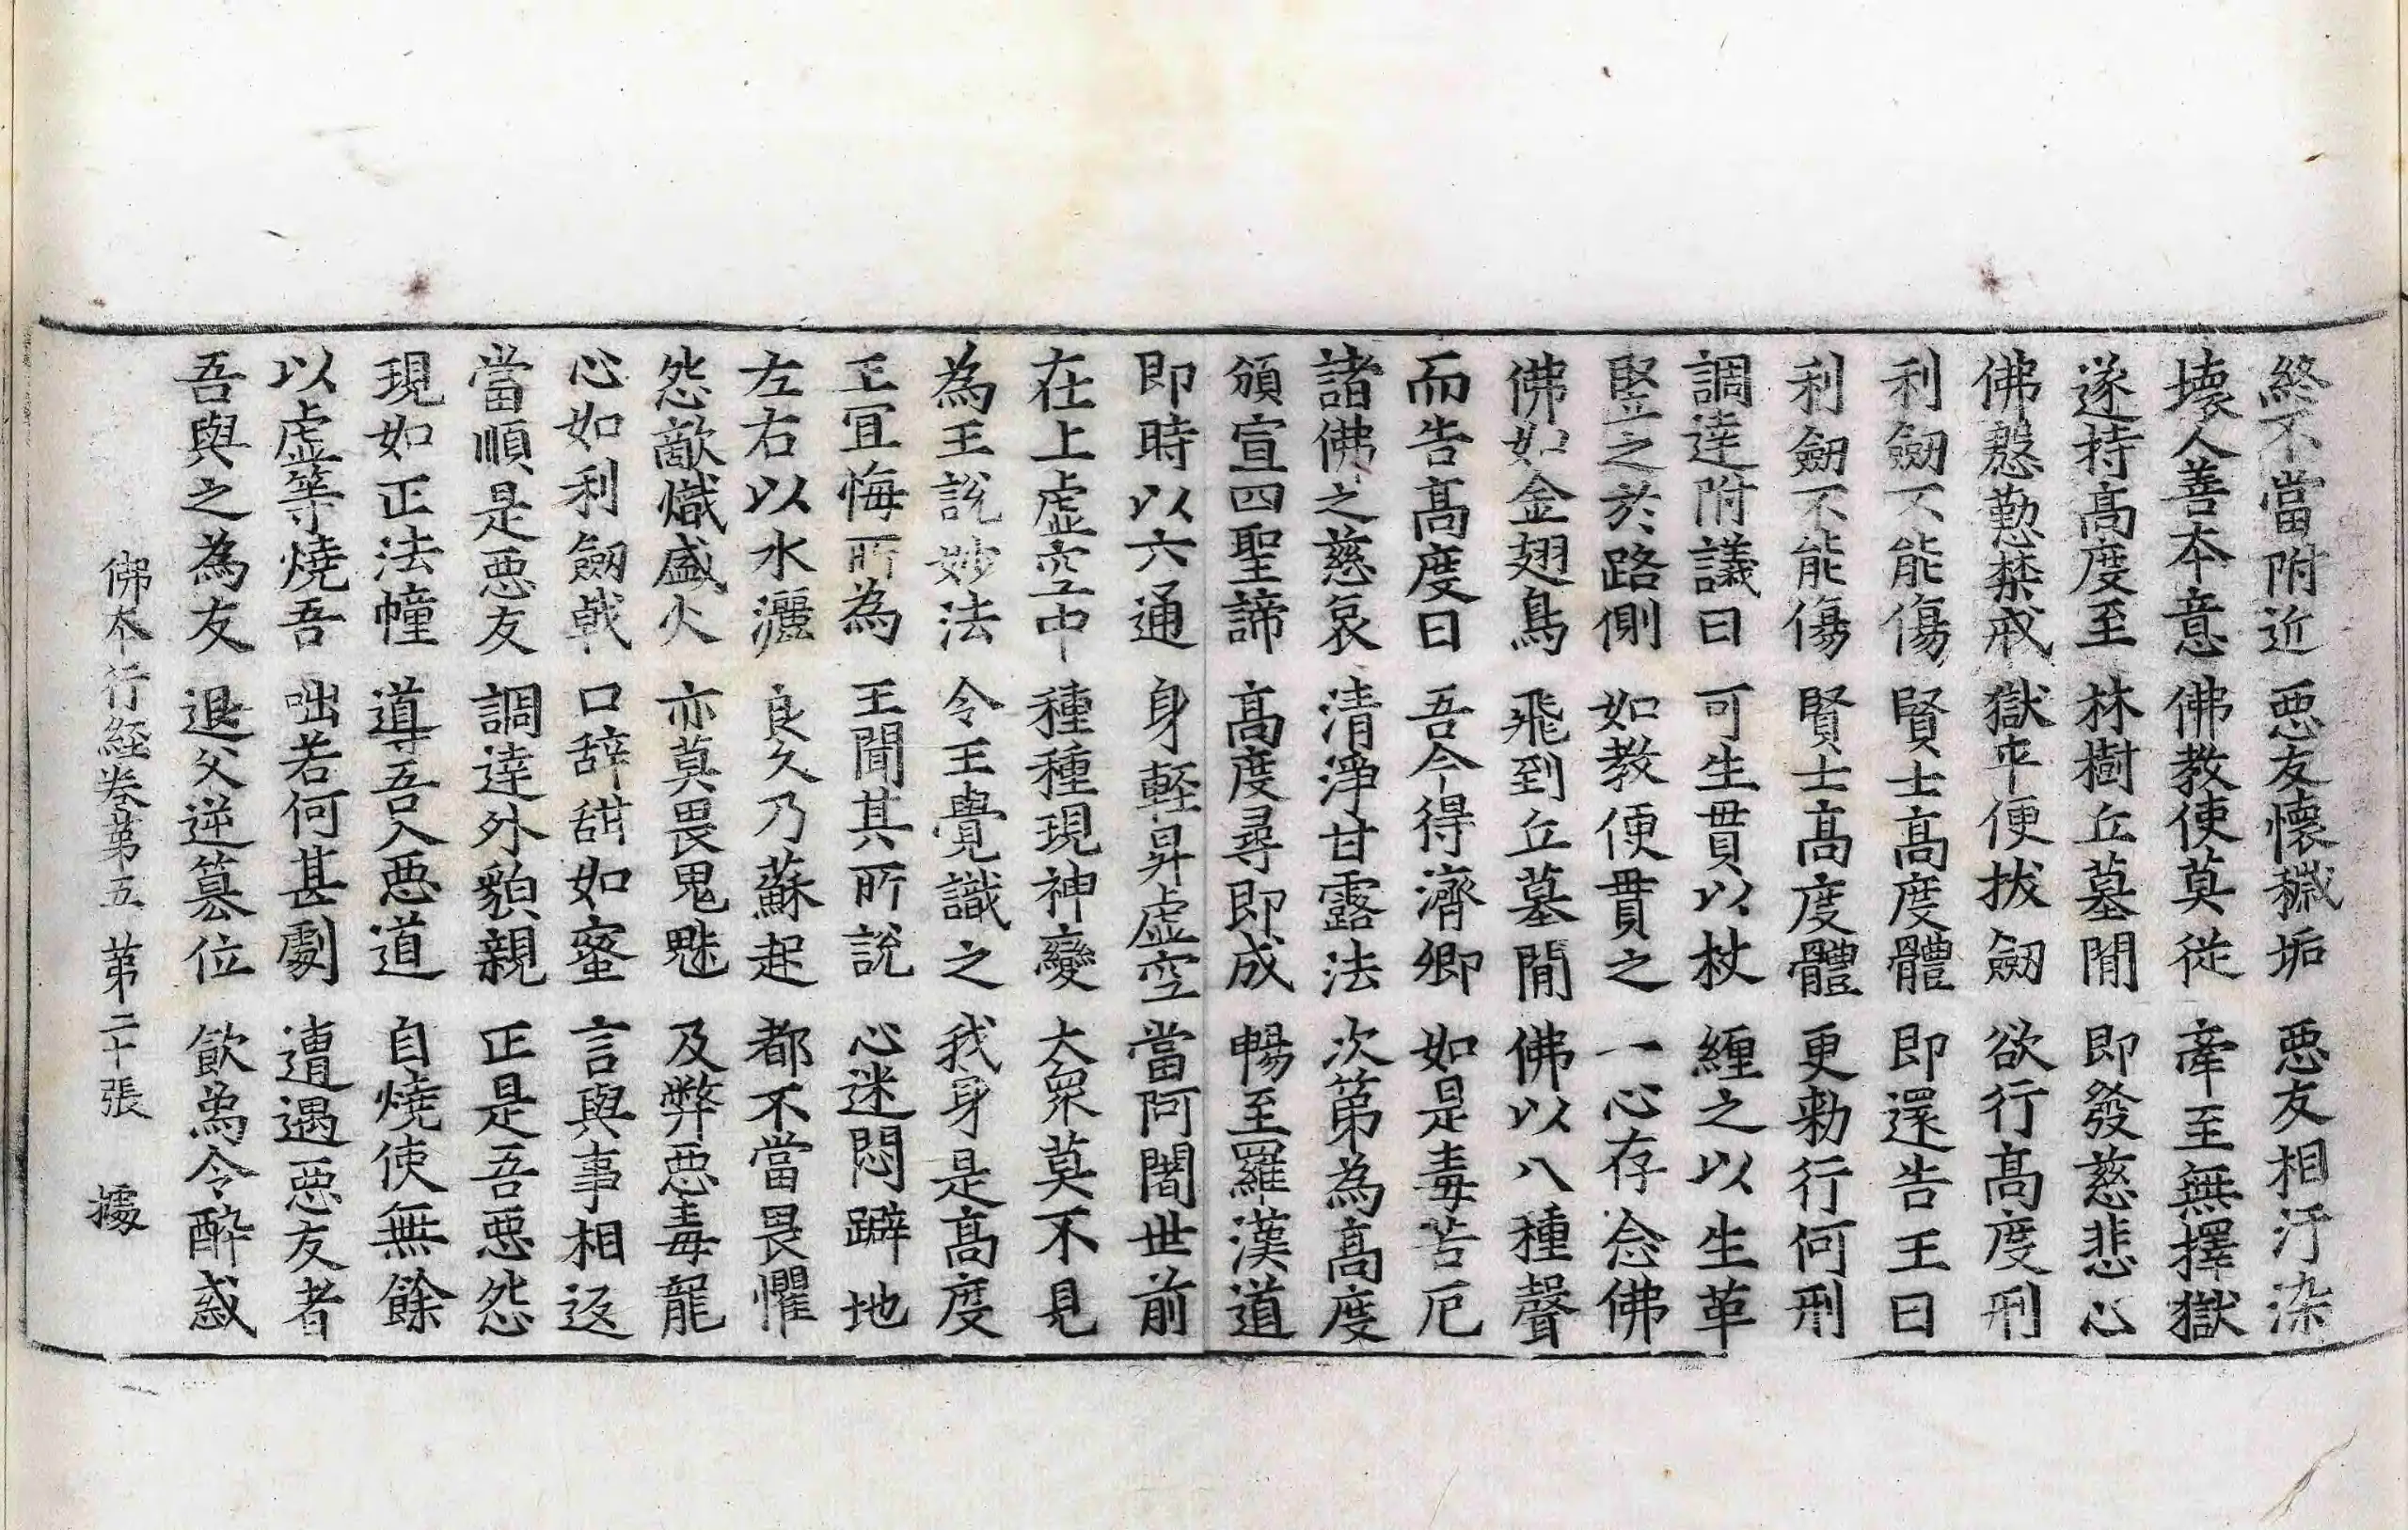 終不當附近 惡友懷穢垢 惡友相汙染
壞人善本意 佛教使莫從 牽至無擇獄
遂持高度至 林樹丘墓閒 即發慈悲心
佛慇懃禁戒 獄卒便拔劒 欲行高度刑
利劒不能傷 賢士高度體 即還告王曰
利劒不能傷 賢士高度體 更勑行何刑
調達附議曰 可生貫以杖 纏之以生革
竪之於路側 如教便貫之 一心存念佛
佛如金翅鳥 飛到丘墓閒 佛以八種聲
而告高度曰 吾今得濟卿 如是毒苦厄
諸佛之慈哀 清淨甘露法 次第為高度
頒宣四聖諦 高度尋即成 暢至羅漢道
即時以六通 身輕昇虛空 當阿闍世前
在上虛空中 種種現神變 大衆莫不見
為王說妙法 令王覺識之 我身是高度
王宜悔所為 王聞其所說 心迷悶躃地
左右以水灑 良久乃蘇起 都不當畏懼
怨敵熾盛火 亦莫畏鬼魅 及弊惡毒龍
心如利劒戟 口辞甜如蜜 言與事相返
當順是惡友 調達外貌親 正是吾惡怨
現如正法幢 導吾入惡道 自燒使無餘
以虛等燒吾 咄若何甚劇 遭遇惡友者
吾與之為友 退父逆篡位 飲為令醉惑
佛本行經卷第五 第二十張 據